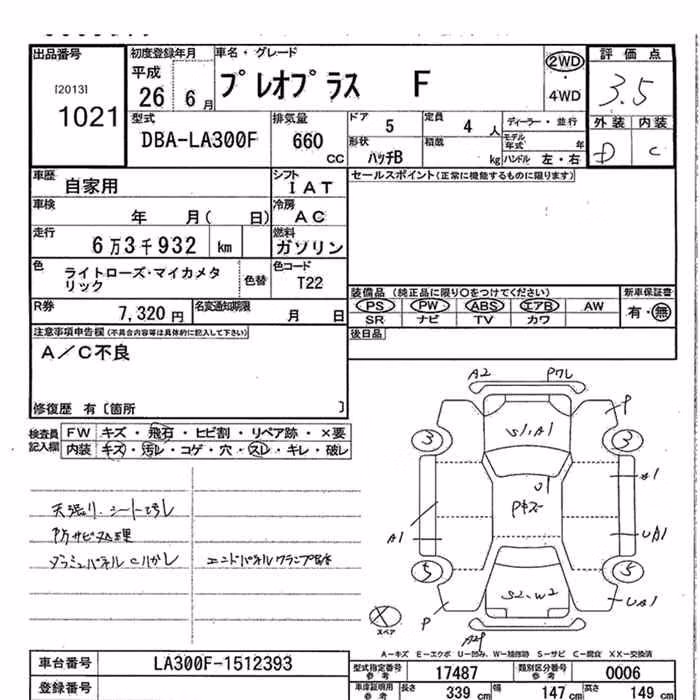 出品番号
[2013]
1021
初度登録年月
平成
26 6月
車名・グレード
プレオプラス F
2WD
・
4WD
評価点
3.5
外装 内装
D C
型式
DBA-LA300F
排気量
660 CC
ドア 5
定員 4 人
形状 ハッチB
積載 kg
ディーラー・並行
モデル年式 年
ハンドル 左・右
車歴 自家用
シフト IAT
車検 年 月( 日)
冷房 AC
走行 6万3千932 km
燃料 ガソリン
色 ライトローズ・マイカメタリック
色替
色コード T22
R券 7,320円
名変通知期限 月 日
セールスポイント(正常に機能するものに限ります)
装備品 (純正品に限り○をつけてください)
新車保証書
PS PW ABS エアB AW
SR ナビ TV カワ
有・無
後日品
注意事項申告欄(不具合内容等は具体的に記入して下さい)
A/C不良
修復歴 有〔箇所 〕
検査員記入欄
FW キズ・飛石・ヒビ割・リペア跡・×要
内装 キズ・汚レ・コゲ・穴・スレ・キレ・破レ
防サビ処理
A2
P
S1,A1
3 3
U1
A1
UA1
5 5
UA1
S2.W2
P
スペア
A−キズ E−エクボ U−凹み W−補修跡 S−サビ C−腐食 XX−交換済
車台番号 LA300F-1512393
登録番号
型式指定番号 17487
類別区分番号 0006
車庫証明用参考
長さ 339 cm
幅 147 cm
高さ 149 cm